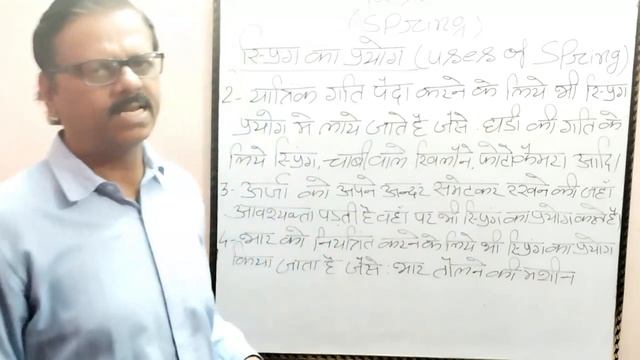 (Spring)
स्प्रिंग का प्रयोग (uses of Spring)
2- यात्रिक गति पैदा करने के लिये भी स्प्रिंग
प्रयोग मे लाये जाते है जैसे - घडी की गति के
लिये स्प्रिंग, चाबी वाले खिलौने, फोटो कैमरा आदि।
3- ऊर्जा को अपने अन्दर समेटकर रखने की जहाँ
आवश्यक्ता पड़ती है वहाँ पर भी स्प्रिंग का प्रयोग करते है।
4- भार को नियत्रित करने के लिये भी स्प्रिंग का प्रयोग
किया जाता है जैसे : भार तौलने की मशीन